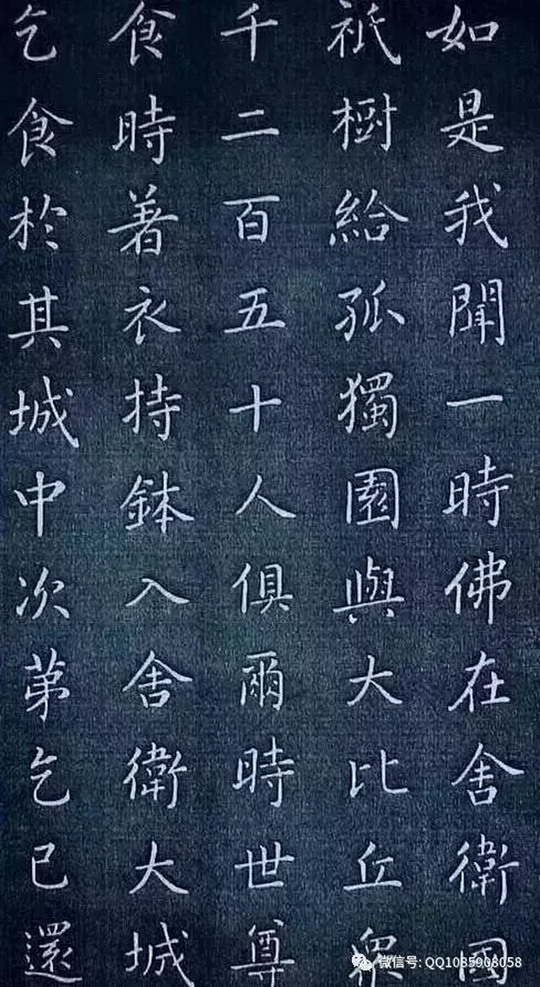 如是我聞一時佛在舍衛國
祇樹給孤獨園與大比丘眾
千二百五十人俱爾時世尊
食時著衣持鉢入舍衛大城
乞食於其城中次第乞已還
微信号: QQ1035908058